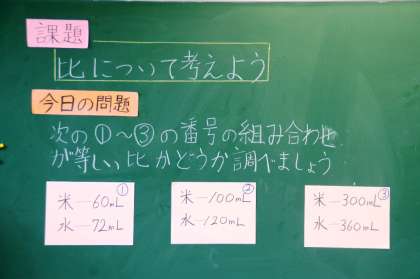 課題
比について考えよう
今日の問題
次の①～③の番号の組み合わせ
が等しい、比かどうか調べましょう
①
米—60mL
水—72mL
②
米—100mL
水—120mL
③
米—300mL
水—360mL